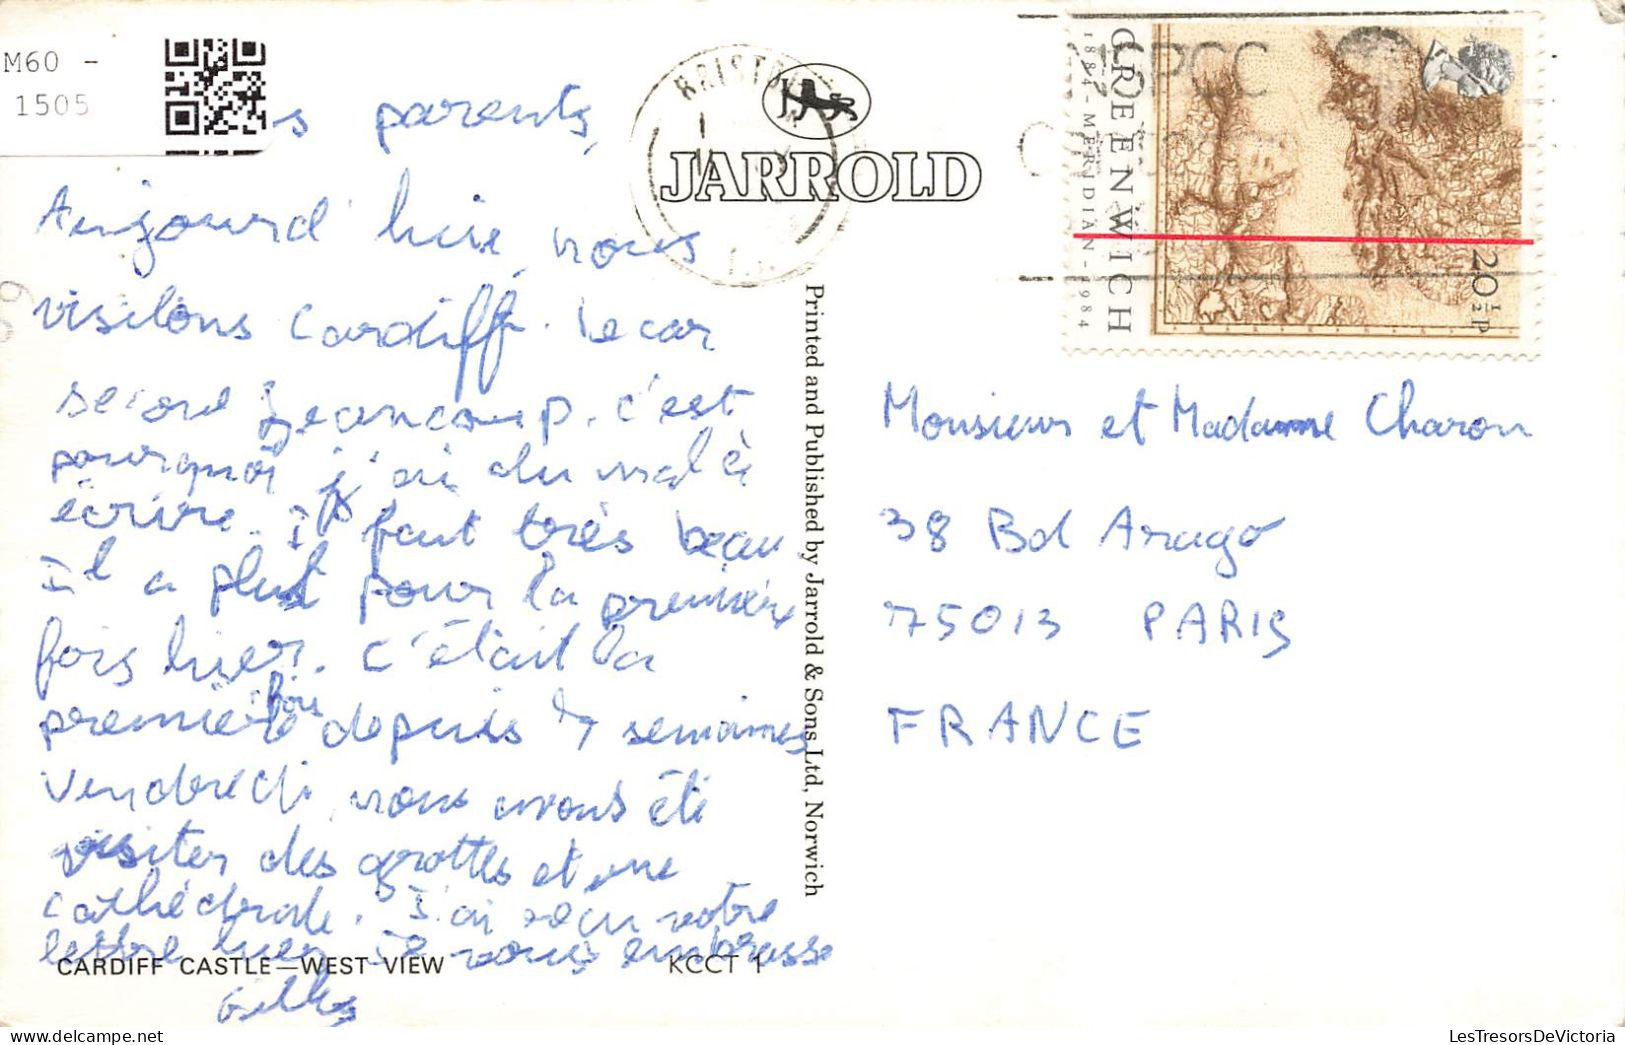 M60 -
1505
s parents,
Aujourd'huie, nous
visitons Cardiff. Le car
secoue beaucoup. c'est
pourquoi j'ai du mal à
écrire. Il faut très beau
Il a plut pour la première
fois hier. C'était la
première fois depuis 7 semaines
Vendredi, nous avons été
visiter des grottes et une
cathédrale. J'ai reçu votre
lettre hier. Je vous embrasse
Gilles
CARDIFF CASTLE—WEST VIEW
KCCT 1
BRISTOL
J.
JARROLD
Printed and Published by Jarrold & Sons Ltd, Norwich
GREENWICH
1884-MERIDIAN-1984
20½p
Monsieur et Madame Charon
38 Bd Arago
75013 PARIS
FRANCE
LesTresorsDeVictoria